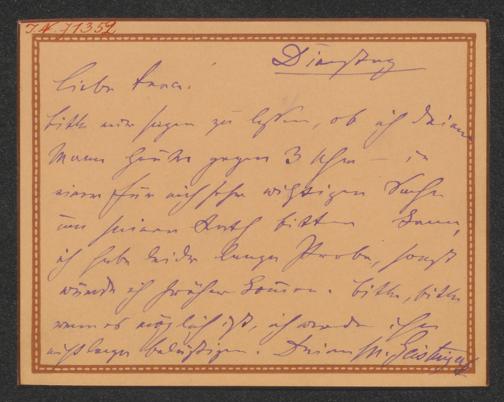 J.N. 71352
Dienstag
Liebe Anna!
bitte mir sagen zu lassen, ob ich Deinen
Mann heute gegen 3 Uhr – in
einer für mich sehr wichtigen Sache
um seinen Rath bitten kann,
ich habe leider lange Probe, sonst
würde ich früher kommen. bitte, bitte
wenn es möglich ist, ich werde ihn
nicht lange belästigen. Deine M. Geistinger